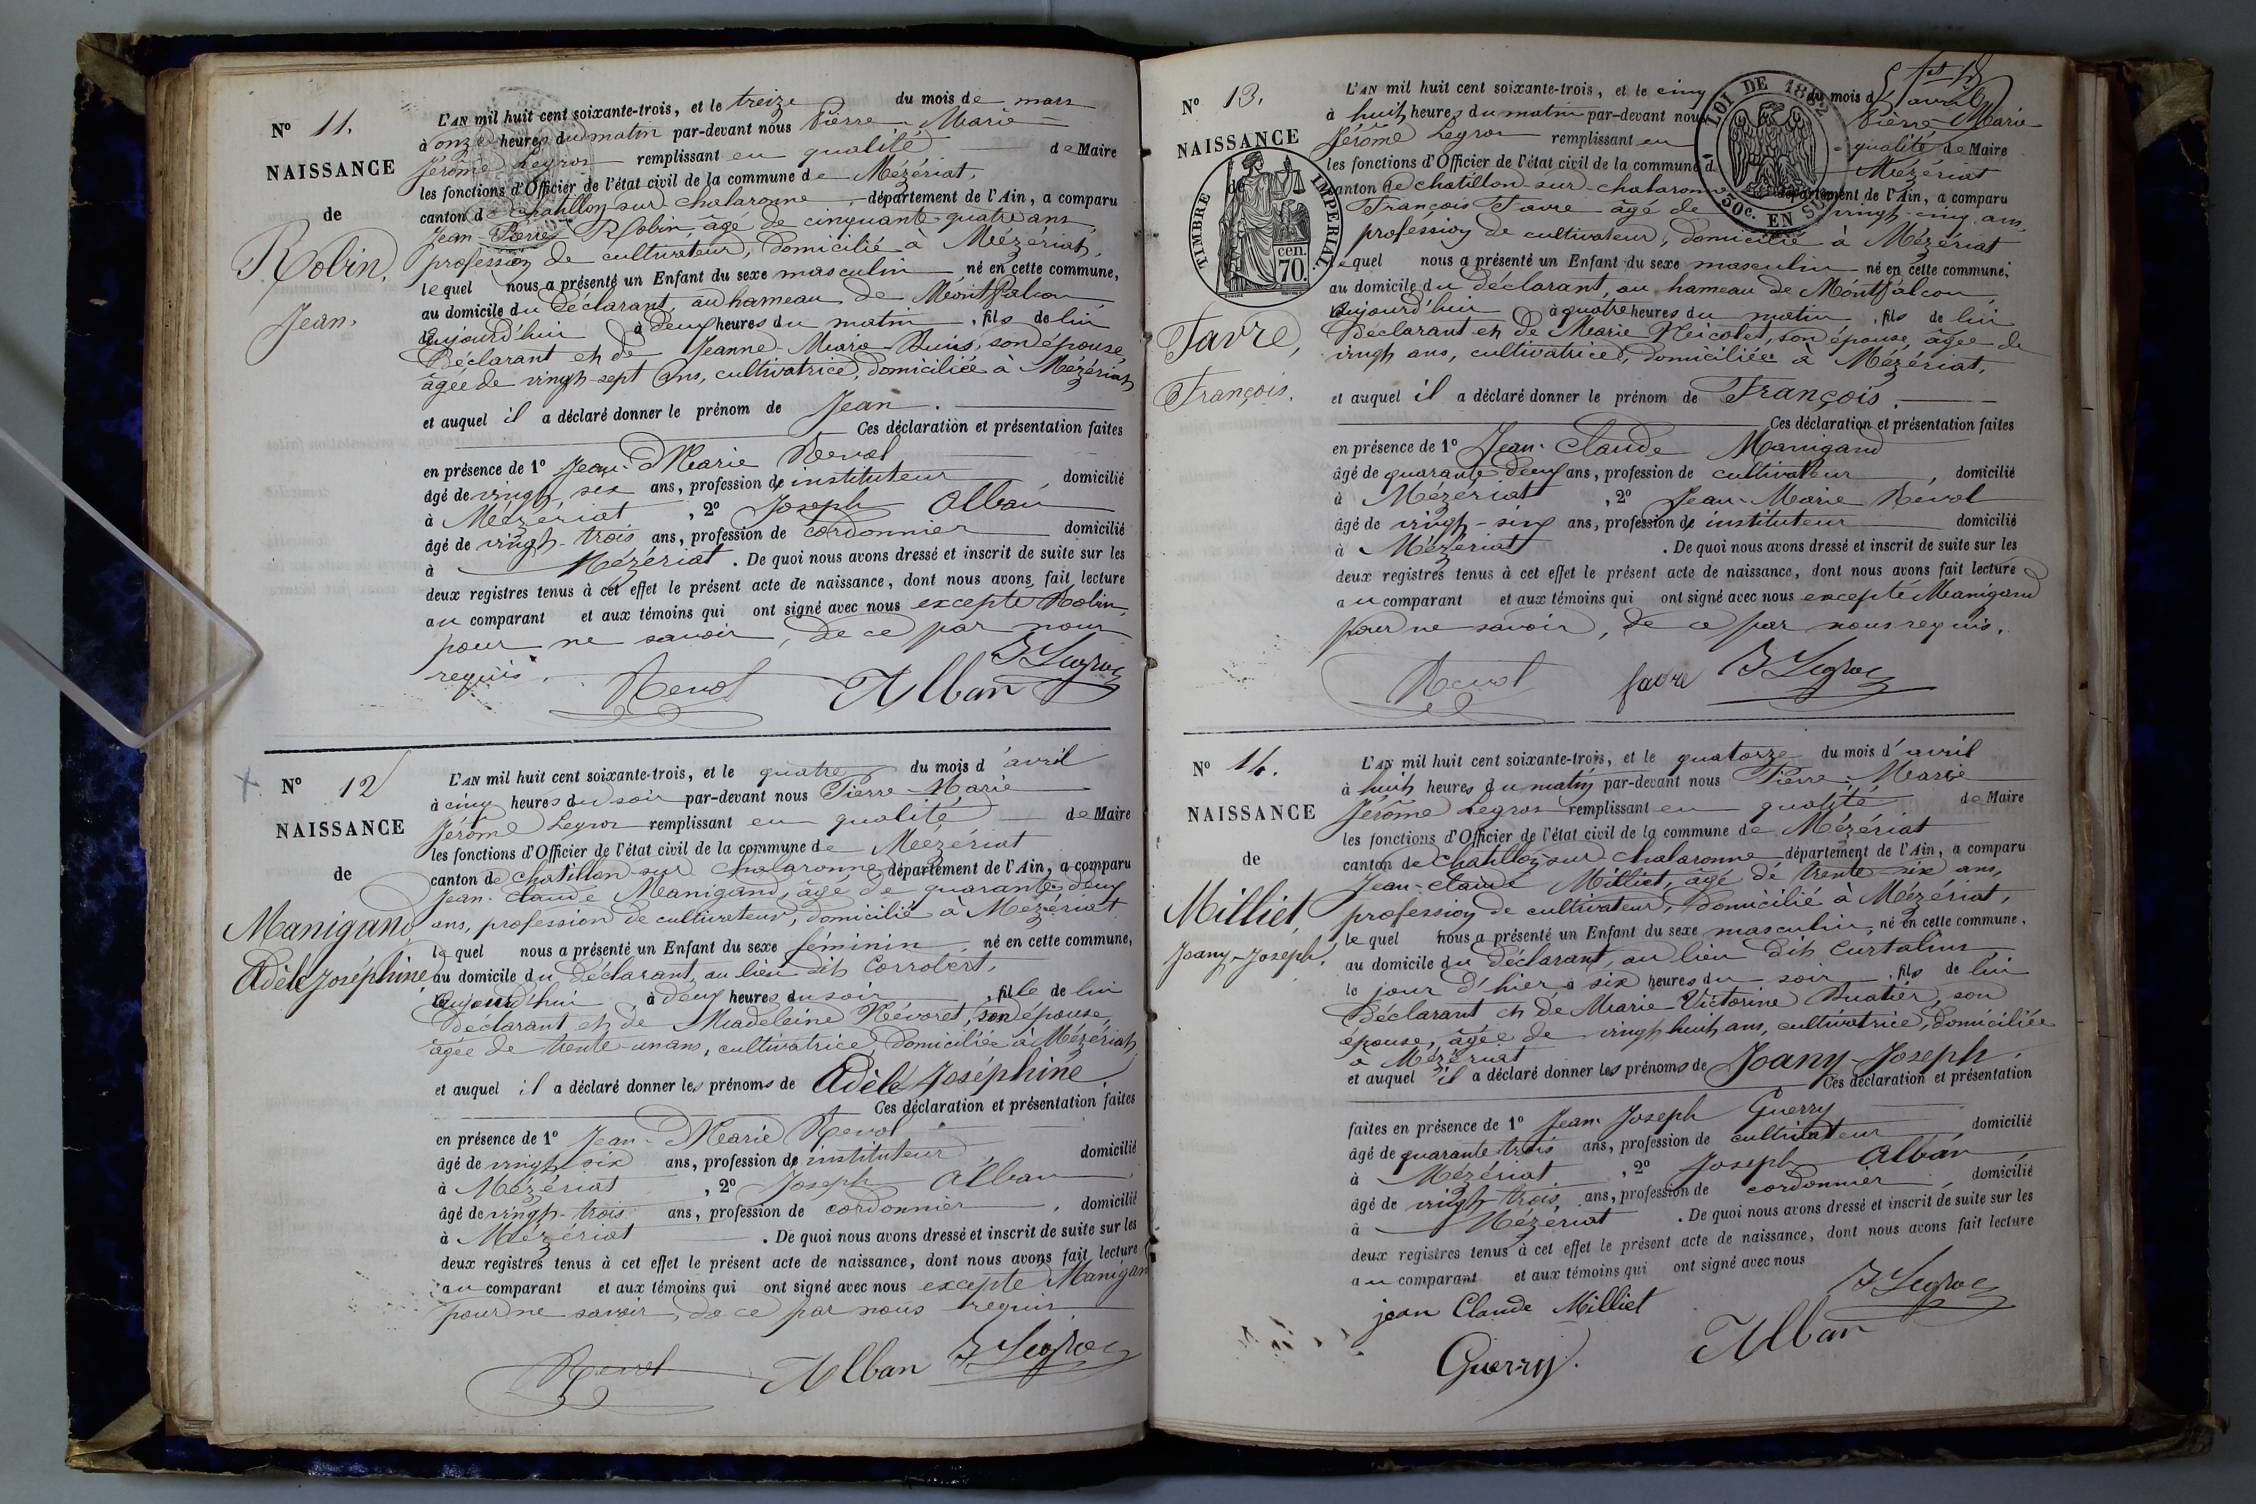 N° 11.
NAISSANCE
de
Robin,
Jean.
L'AN mil huit cent soixante-trois, et le treize du mois de mars
à onze heures du matin par-devant nous Pierre-Marie
Jérôme Legros remplissant en qualité de Maire
les fonctions d'Officier de l'état civil de la commune de Mézériat,
canton de Chatillon sur Chalaronne, département de l'Ain, a comparu
Jean-Pierre Robin, âgé de cinquante-quatre ans,
profession de cultivateur, domicilié à Mézériat,
lequel nous a présenté un Enfant du sexe masculin né en cette commune,
au domicile du déclarant, au hameau de Montfalcon,
aujourd'hui à deux heures du matin, fils de lui
déclarant et de Jeanne-Marie Buis, son épouse,
âgée de vingt-sept ans, cultivatrice, domiciliée à Mézériat,
et auquel il a déclaré donner le prénom de Jean.
Ces déclaration et présentation faites
en présence de 1° Jean-Marie Revol
âgé de vingt six ans, profession de instituteur domicilié
à Mézériat, 2° Joseph Alban
âgé de vingt-trois ans, profession de cordonnier domicilié
à Mézériat. De quoi nous avons dressé et inscrit de suite sur les
deux registres tenus à cet effet le présent acte de naissance, dont nous avons fait lecture
au comparant et aux témoins qui ont signé avec nous excepté Robin
pour ne savoir, de ce par nous
requis.
Revol Alban J Legros
N° 12
NAISSANCE
de
Manigand,
Adèle Joséphine,
L'AN mil huit cent soixante-trois, et le quatre du mois d'avril
à cinq heures du soir par-devant nous Pierre-Marie
Jérôme Legros remplissant en qualité de Maire
les fonctions d'Officier de l'état civil de la commune de Mézériat
canton de Chatillon sur Chalaronne département de l'Ain, a comparu
Jean-Claude Manigand, âgé de quarante-deux
ans, profession de cultivateur, domicilié à Mézériat
lequel nous a présenté un Enfant du sexe féminin, né en cette commune,
au domicile du déclarant, au lieu dit Corrobert,
aujourd'hui à deux heures du soir, fille de lui
déclarant et de Madeleine Névoret, son épouse,
âgée de trente-un ans, cultivatrice, domiciliée à Mézériat,
et auquel il a déclaré donner les prénoms de Adèle Joséphine
Ces déclaration et présentation faites
en présence de 1° Jean-Marie Revol
âgé de vingt six ans, profession de instituteur, domicilié
à Mézériat, 2° Joseph Alban
âgé de vingt-trois ans, profession de cordonnier, domicilié
à Mézériat. De quoi nous avons dressé et inscrit de suite sur les
deux registres tenus à cet effet le présent acte de naissance, dont nous avons fait lecture
au comparant et aux témoins qui ont signé avec nous excepté Manigan
pour ne savoir, de ce par nous requis
Revol Alban J Legros
N° 13.
NAISSANCE
de
TIMBRE IMPERIAL.
cen. 70.
Favre,
François.
LOI DE 1862
50c. EN SUS
L'AN mil huit cent soixante-trois, et le cinq du mois d'avril
à huit heures du matin par-devant nous Pierre-Marie
Jérôme Legros remplissant en qualité de Maire
les fonctions d'Officier de l'état civil de la commune d Mézériat
canton de Chatillon sur-Chalaronne département de l'Ain, a comparu
François Favre âgé de vingt-cinq ans,
profession de cultivateur, domicilié à Mézériat
lequel nous a présenté un Enfant du sexe masculin né en cette commune,
au domicile du déclarant, au hameau de Montfalcon,
aujourd'hui à quatre heures du matin, fils de lui
déclarant et de Marie Nicolet, son épouse, âgée de
vingt ans, cultivatrice, domiciliée à Mézériat,
et auquel il a déclaré donner le prénom de François.
Ces déclaration et présentation faites
en présence de 1° Jean-Claude Manigand
âgé de quarante deux ans, profession de cultivateur, domicilié
à Mézériat, 2° Jean-Marie Revol
âgé de vingt-six ans, profession de instituteur domicilié
à Mézériat. De quoi nous avons dressé et inscrit de suite sur les
deux registres tenus à cet effet le présent acte de naissance, dont nous avons fait lecture
au comparant et aux témoins qui ont signé avec nous excepté Manigand
pour ne savoir, de ce par nous requis.
Revol favre J Legros
N° 14.
NAISSANCE
de
Milliet,
Joany-Joseph.
L'AN mil huit cent soixante-trois, et le quatorze du mois d'avril
à huit heures du matin par-devant nous Pierre-Marie
Jérôme Legros remplissant en qualité de Maire
les fonctions d'Officier de l'état civil de la commune de Mézériat
canton de Chatillon sur-Chalaronne département de l'Ain, a comparu
Jean-Claude Milliet, âgé de trente-six ans,
profession de cultivateur, domicilié à Mézériat,
lequel nous a présenté un Enfant du sexe masculin, né en cette commune,
au domicile du déclarant, au lieu dit Curtalin,
le jour d'hier à six heures du soir, fils de lui
déclarant et de Marie Victorine Buatier, son
épouse, âgée de vingt huit ans, cultivatrice, domiciliée
à Mézériat
et auquel il a déclaré donner les prénoms de Joany-Joseph.
Ces déclaration et présentation
faites en présence de 1° Jean Joseph Guerry
âgé de quarante trois ans, profession de cultivateur, domicilié
à Mézériat, 2° Joseph Alban
âgé de vingt-trois ans, profession de cordonnier, domicilié
à Mézériat. De quoi nous avons dressé et inscrit de suite sur les
deux registres tenus à cet effet le présent acte de naissance, dont nous avons fait lecture
au comparant et aux témoins qui ont signé avec nous
J Legros
jean Claude Milliet
Alban
Guerry.